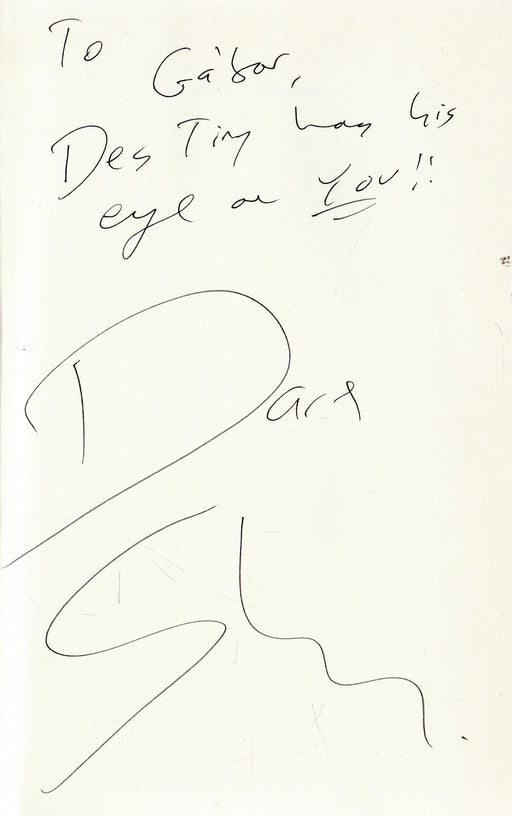 To
Gábor,
Des Tiny has his
eye on You!!
Dara